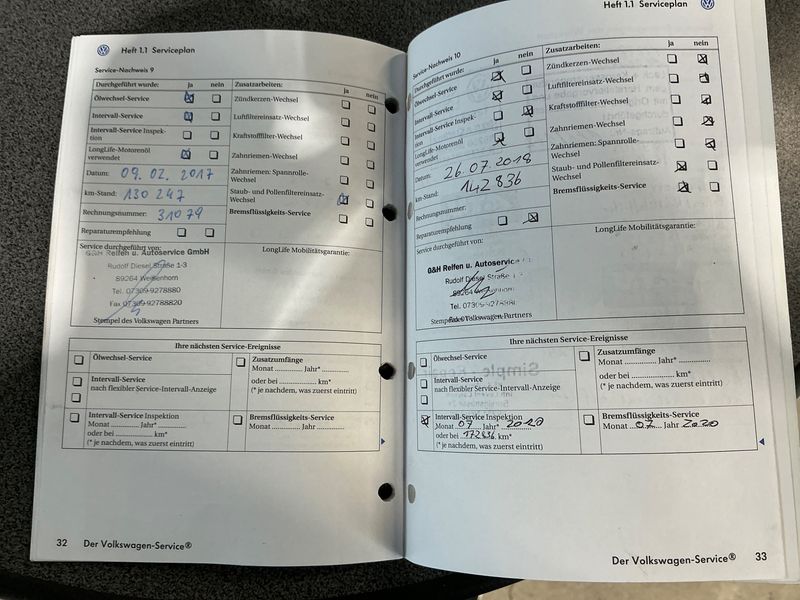 Heft 1.1 Serviceplan
Service-Nachweis 9
Durchgeführt wurde: ja nein
Ölwechsel-Service
Intervall-Service
Intervall-Service Inspek-
tion
LongLife-Motorenöl
verwendet
Datum: 09. 02. 2017
km-Stand: 130 247
Rechnungsnummer: 31079
Reparaturempfehlung
Zusatzarbeiten: ja nein
Zündkerzen-Wechsel
Luftfiltereinsatz-Wechsel
Kraftstofffilter-Wechsel
Zahnriemen-Wechsel
Zahnriemen: Spannrolle-
Wechsel
Staub- und Pollenfiltereinsatz-
Wechsel
Bremsflüssigkeits-Service
Service durchgeführt von:
G&H Reifen u. Autoservice GmbH
Rudolf Diesel Straße 1-3
89264 Weißenhorn
Tel. 07309-9278880
Fax 07309-92788820
Stempel des Volkswagen Partners
LongLife Mobilitätsgarantie:
Ihre nächsten Service-Ereignisse
Ölwechsel-Service
Intervall-Service
nach flexibler Service-Intervall-Anzeige
Intervall-Service Inspektion
Monat ............ Jahr* ............
oder bei ............ km*
(* je nachdem, was zuerst eintritt)
Zusatzumfänge
Monat ............ Jahr* ............
oder bei ............ km*
(* je nachdem, was zuerst eintritt)
Bremsflüssigkeits-Service
Monat ............ Jahr ............
32 Der Volkswagen-Service®
Heft 1.1 Serviceplan
Service-Nachweis 10
Durchgeführt wurde: ja nein
Ölwechsel-Service
Intervall-Service
Intervall-Service Inspek-
tion
LongLife-Motorenöl
verwendet
Datum: 26. 07. 2018
km-Stand: 142 836
Rechnungsnummer:
Reparaturempfehlung
Zusatzarbeiten: ja nein
Zündkerzen-Wechsel
Luftfiltereinsatz-Wechsel
Kraftstofffilter-Wechsel
Zahnriemen-Wechsel
Zahnriemen: Spannrolle-
Wechsel
Staub- und Pollenfiltereinsatz-
Wechsel
Bremsflüssigkeits-Service
Service durchgeführt von:
G&H Reifen u. Autoservice
Rudolf Diesel Straße
89264 Weißenhorn
Stempel des Volkswagen Partners
LongLife Mobilitätsgarantie:
Ihre nächsten Service-Ereignisse
Ölwechsel-Service
Intervall-Service
nach flexibler Service-Intervall-Anzeige
Intervall-Service Inspektion
Monat 07 Jahr* 2020
oder bei 172836 km*
(* je nachdem, was zuerst eintritt)
Zusatzumfänge
Monat ............ Jahr* ............
oder bei ............ km*
(* je nachdem, was zuerst eintritt)
Bremsflüssigkeits-Service
Monat 07 Jahr 2020
Der Volkswagen-Service® 33